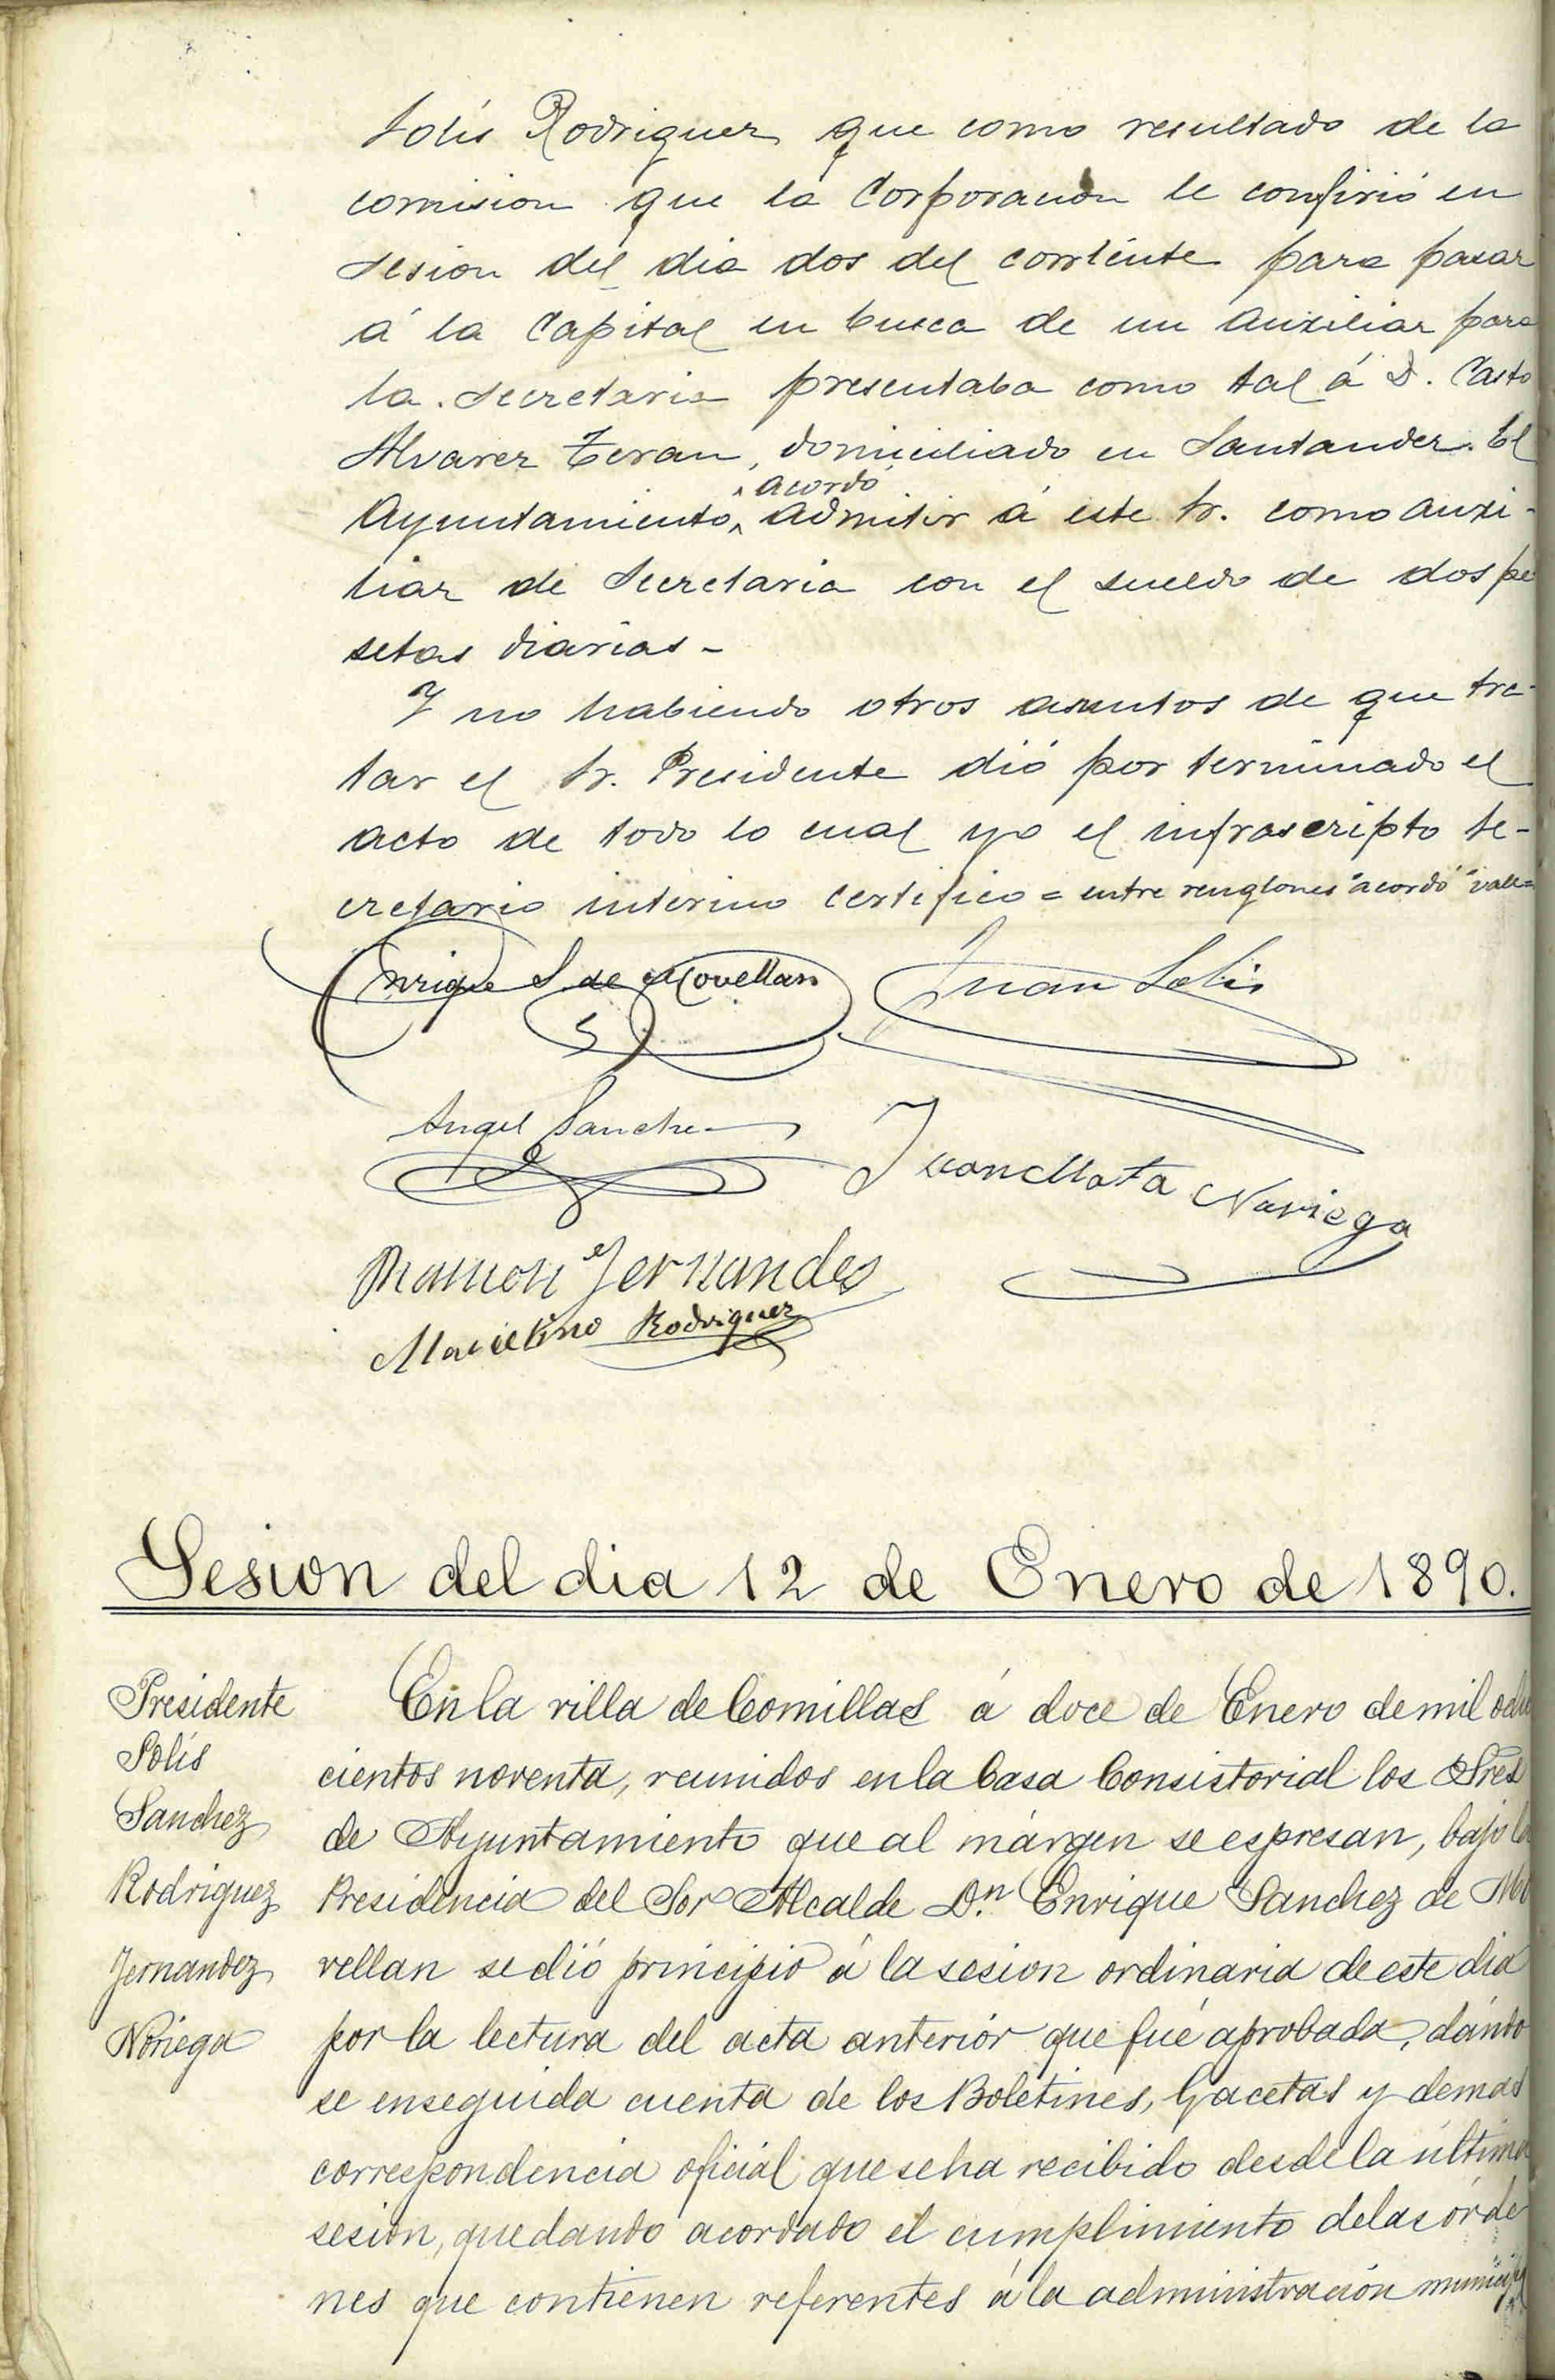 Solís Rodriguez que como resultado de la
comision que la Corporacion le confirió en
sesion del dia dos del corriente para pasar
á la Capital en busca de un auxiliar para
la Secretaria presentaba como tal á D. Casto
Alvarez Teran, domiciliado en Santander. El
acordó
Ayuntamiento admitir á este Sr. como auxi-
liar de Secretaria con el sueldo de dos pe
setas diarias-
Y no habiendo otros asuntos de que tra-
tar el Sr. Presidente dió por terminado el
acto de todo lo cual yo el infrascripto Se-
cretario interino certifico = entre renglones "acordó" vale=
Enrique S. de Movellan Juan Solis
Angel Sanchez
Juan Mata Noriega
Ramon Fernandes
Marcelino Rodriguez
Sesion del dia 12 de Enero de 1890.
Presidente
Solís
Sanchez
Rodriguez
Fernandez
Noriega
En la villa de Comillas á doce de Enero de mil ocho
cientos noventa, reunidos en la Casa Consistorial los Sres
de Ayuntamiento que al márgen se espresan, bajo la
Presidencia del Sor Alcalde D.n Enrique Sanchez de Mo
vellan se dió principio á la sesion ordinaria de este dia
por la lectura del acta anteriór que fué aprobada, dándo
se enseguida cuenta de los Boletines, Gacetas y demas
correspondencia oficial que se ha recibido desde la última
sesion, quedando acordado el cumplimiento de las órde
nes que contienen referentes á la administración municipal